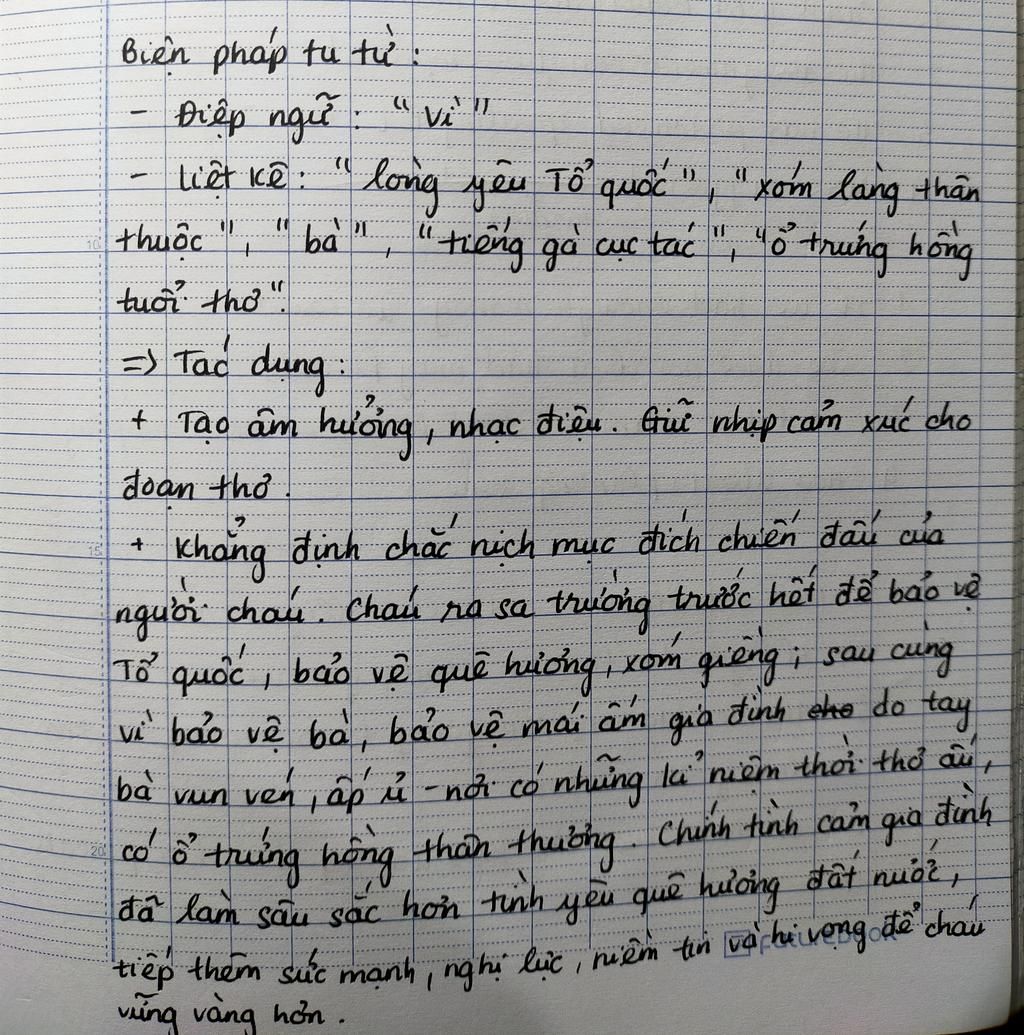 Biện pháp tu từ :
- Điệp ngữ : " Vì "
- Liệt kê : " lòng yêu Tổ quốc ", " xóm làng thân
thuộc ", " bà ", " tiếng gà cục tác ", " ổ trứng hồng
tuổi thơ ".
=> Tác dụng :
+ Tạo âm hưởng, nhạc điệu. Giữ nhịp cảm xúc cho
đoạn thơ.
+ Khẳng định chắc nịch mục đích chiến đấu của
người cháu. Cháu ra sa trường trước hết để bảo vệ
Tổ quốc, bảo vệ quê hương, xóm giềng; sau cùng
vì bảo vệ bà, bảo vệ mái ấm gia đình cho do tay
bà vun vén, ấp ủ - nơi có những kỉ niệm thời thơ ấu,
có ổ trứng hồng thân thương. Chính tình cảm gia đình
đã làm sâu sắc hơn tình yêu quê hương đất nước,
tiếp thêm sức mạnh, nghị lực, niềm tin và hi vọng để cháu
vững vàng hơn.